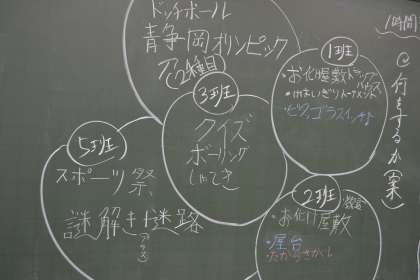 1時間
@何をするか(案)
ドッチボール
青争岡オリンピック
(12種目)
1班
・お化屋敷
ピタゴラスイッチ
3班
クイズ
ボーリング
しゃてき
5班
スポーツ祭
謎解き迷路
2班
・お化け屋敷
・屋台
たからさがし